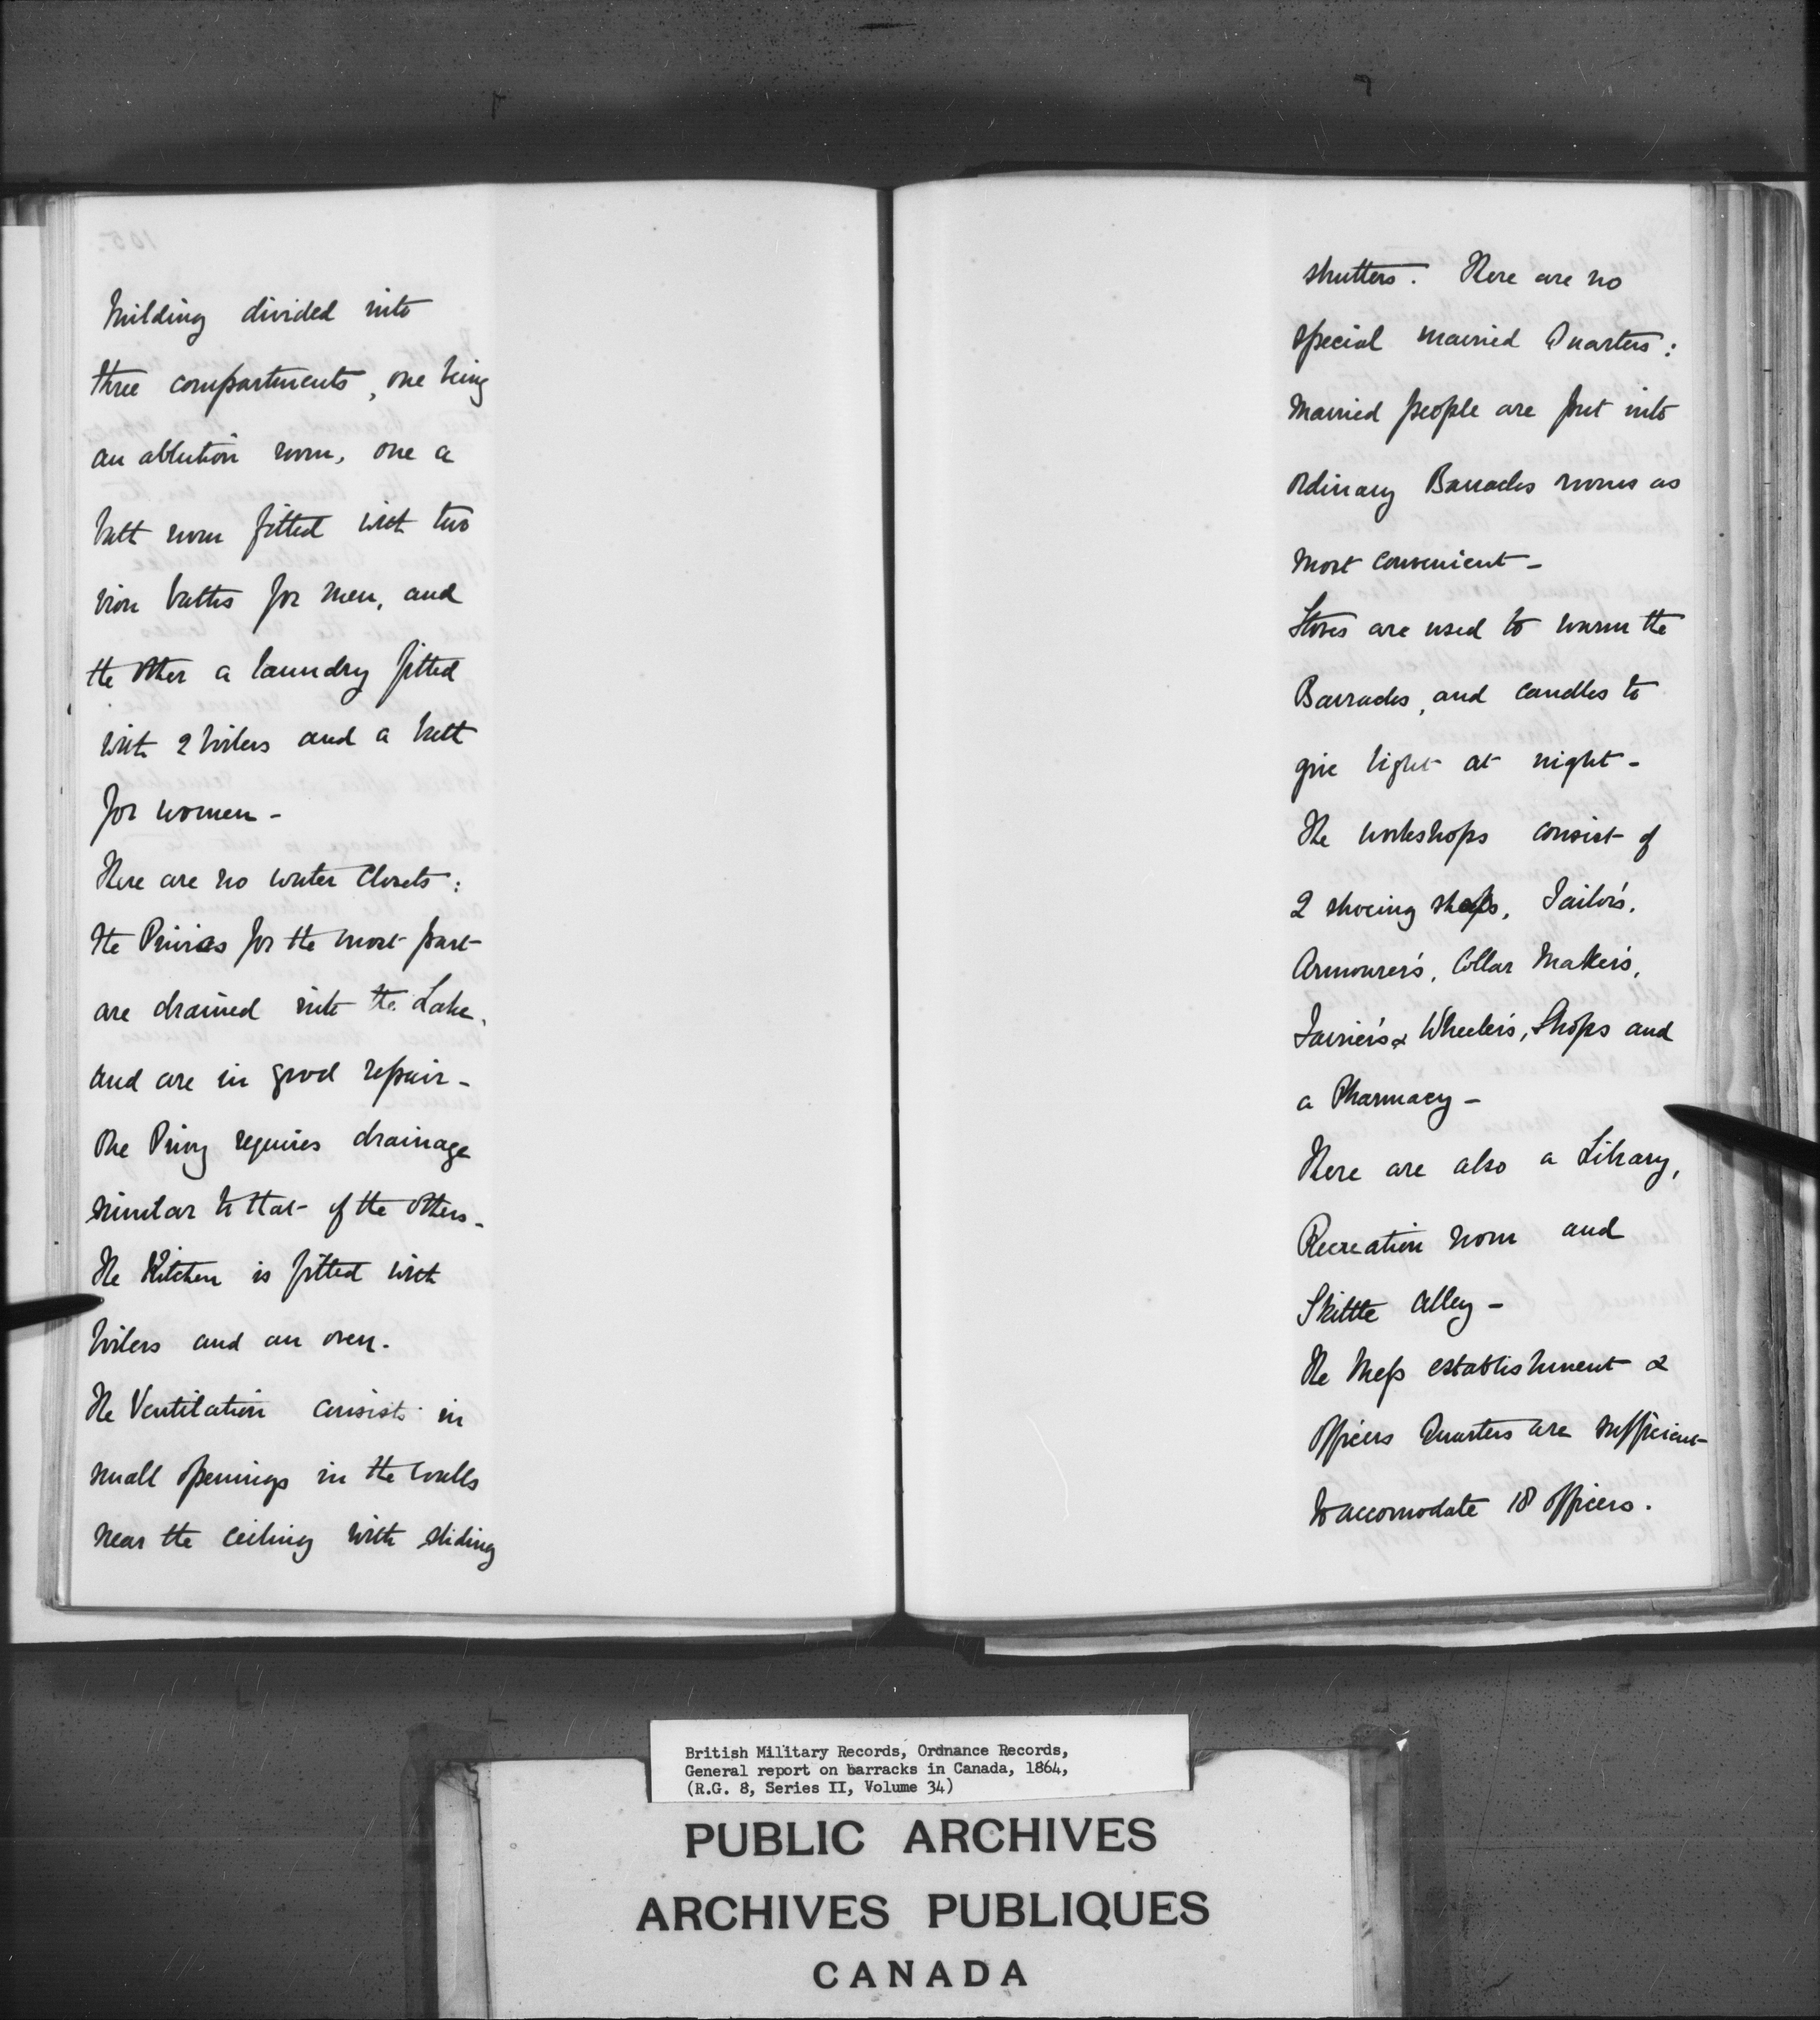 building divided into
three compartments, one being
an ablution room, one a
bath room fitted with two
iron baths for men, and
the other a laundry fitted
with 2 boilers and a bath
for women -
There are no water closets:
the Privies for the most part
are drained into the Lake,
and are in good repair -
One Privy requires drainage
similar to that of the others -
The Kitchen is fitted with
boilers and an oven.
The Ventilation consists in
small openings in the walls
near the ceiling with sliding
shutters. There are no
special married Quarters:
Married people are put into
ordinary Barracks rooms as
most convenient -
Stoves are used to warm the
Barracks, and candles to
give light at night -
The workshops consist of
2 shoeing shops, Tailor's,
Armourer's, Collar Maker's,
Farrier's & Wheeler's, Shops and
a Pharmacy -
There are also a Library,
Recreation room and
Skittle Alley -
The Mess establishment &
Officers Quarters are sufficient
to accomodate 18 officers.
British Military Records, Ordnance Records,
General report on barracks in Canada, 1864,
(R.G. 8, Series II, Volume 34)
PUBLIC ARCHIVES
ARCHIVES PUBLIQUES
CANADA